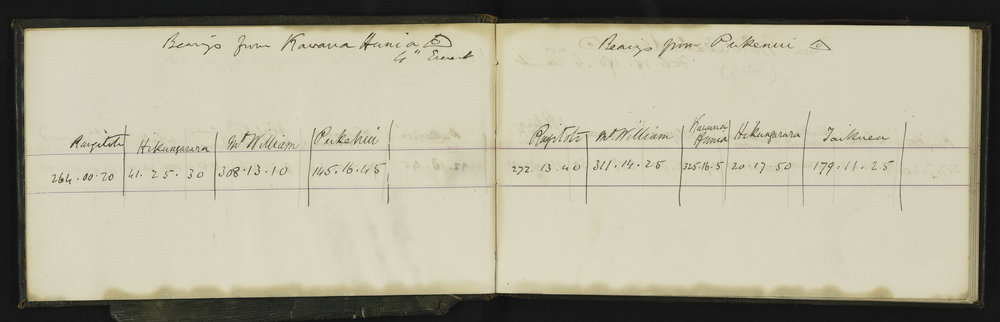 Bearings from Kawana Hunia
4" Everest
Rangitoti Hikungarara Mt William Pukenui
264.00.20 41.25.30 308.13.10 145.16.45
Bearings from Pukenui
Rangitoti Mt William Kawana Hunia Hikungarara
272.13.40 311.14.25 325.16.5 20.17.50 179.11.25